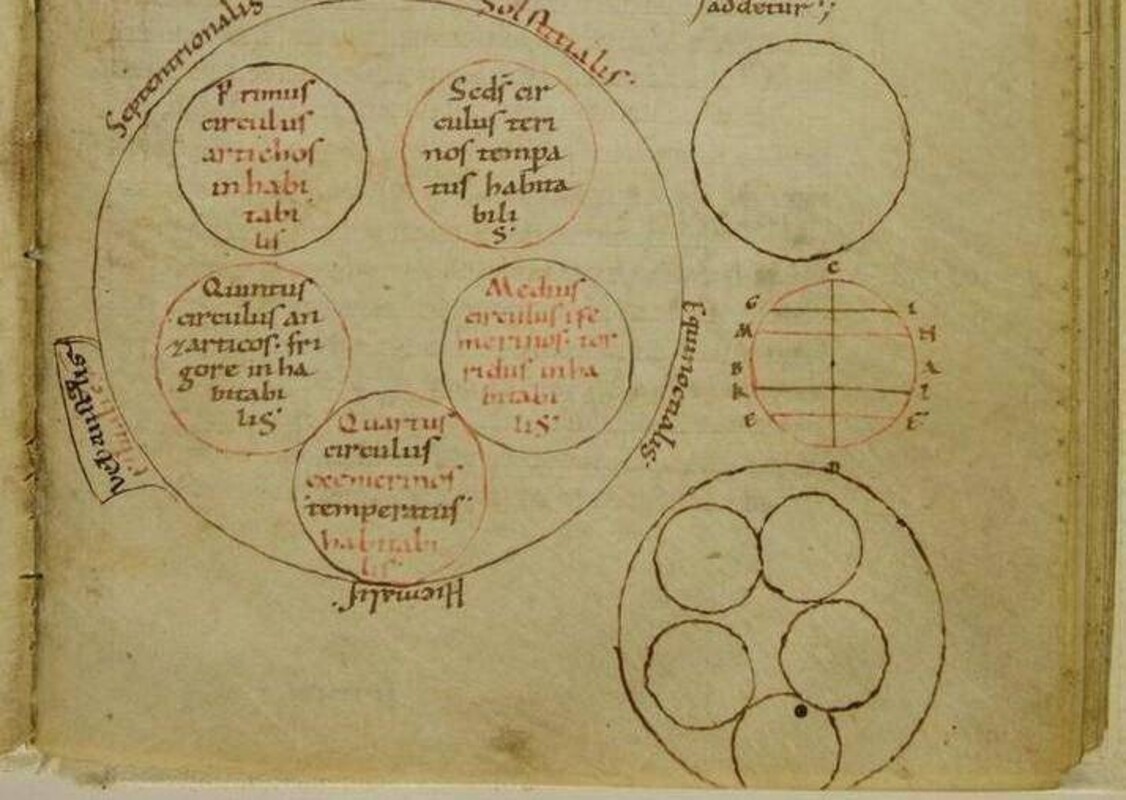 Septentrionalis
Solstitialis.
addetur;
Primus
circulus
artichos
inhabi
tabi
lis
Scds cir
culus teri
nos tempa
tus habita
bili
s.
Quintus
circulus an
tarticos. fri
gore inha
bitabi
lis.
Medius
circulus ise
merinos. tor
ridus inha
bitabi
lis.
Quartus
circulus
exemerinos
temperatus
habitabi
lis.
Equinoctialis.
Hiemalis.
C
G
I
M
H
B
A
K
L
E
F
D